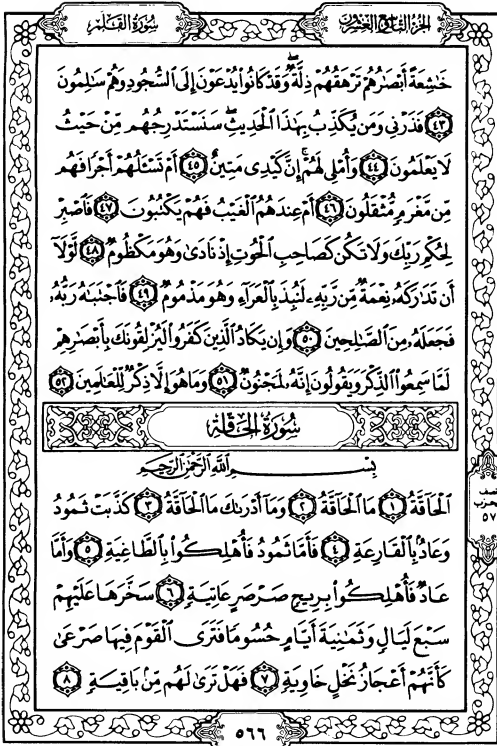 سُورَةُ القَلَمِ
الجزء التاسع والعشرون
خَٰشِعَةً أَبْصَٰرُهُمْ تَرْهَقُهُمْ ذِلَّةٌ ۖ وَقَدْ كَانُوا۟ يُدْعَوْنَ إِلَى ٱلسُّجُودِ وَهُمْ سَٰلِمُونَ
٤٣ فَذَرْنِى وَمَن يُكَذِّبُ بِهَٰذَا ٱلْحَدِيثِ ۖ سَنَسْتَدْرِجُهُم مِّنْ حَيْثُ
لَا يَعْلَمُونَ ٤٤ وَأُمْلِى لَهُمْ ۚ إِنَّ كَيْدِى مَتِينٌ ٤٥ أَمْ تَسْـَٔلُهُمْ أَجْرًا فَهُم
مِّن مَّغْرَمٍ مُّثْقَلُونَ ٤٦ أَمْ عِندَهُمُ ٱلْغَيْبُ فَهُمْ يَكْتُبُونَ ٤٧ فَٱصْبِرْ
لِحُكْمِ رَبِّكَ وَلَا تَكُن كَصَاحِبِ ٱلْحُوتِ إِذْ نَادَىٰ وَهُوَ مَكْظُومٌ ٤٨ لَّوْلَآ
أَن تَدَٰرَكَهُۥ نِعْمَةٌ مِّن رَّبِّهِۦ لَنُبِذَ بِٱلْعَرَآءِ وَهُوَ مَذْمُومٌ ٤٩ فَٱجْتَبَٰهُ رَبُّهُۥ
فَجَعَلَهُۥ مِنَ ٱلصَّٰلِحِينَ ٥٠ وَإِن يَكَادُ ٱلَّذِينَ كَفَرُوا۟ لَيُزْلِقُونَكَ بِأَبْصَٰرِهِمْ
لَمَّا سَمِعُوا۟ ٱلذِّكْرَ وَيَقُولُونَ إِنَّهُۥ لَمَجْنُونٌ ٥١ وَمَا هُوَ إِلَّا ذِكْرٌ لِّلْعَٰلَمِينَ ٥٢
سُورَةُ الحَاقَّةِ
بِسْمِ ٱللَّهِ ٱلرَّحْمَٰنِ ٱلرَّحِيمِ
ٱلْحَآقَّةُ ١ مَا ٱلْحَآقَّةُ ٢ وَمَآ أَدْرَىٰكَ مَا ٱلْحَآقَّةُ ٣ كَذَّبَتْ ثَمُودُ
وَعَادٌۢ بِٱلْقَارِعَةِ ٤ فَأَمَّا ثَمُودُ فَأُهْلِكُوا۟ بِٱلطَّاغِيَةِ ٥ وَأَمَّا
عَادٌ فَأُهْلِكُوا۟ بِرِيحٍ صَرْصَرٍ عَاتِيَةٍ ٦ سَخَّرَهَا عَلَيْهِمْ
سَبْعَ لَيَالٍ وَثَمَٰنِيَةَ أَيَّامٍ حُسُومًا فَتَرَى ٱلْقَوْمَ فِيهَا صَرْعَىٰ
كَأَنَّهُمْ أَعْجَازُ نَخْلٍ خَاوِيَةٍ ٧ فَهَلْ تَرَىٰ لَهُم مِّنۢ بَاقِيَةٍ ٨
نصف
الحزب
٥٧
٥٦٦